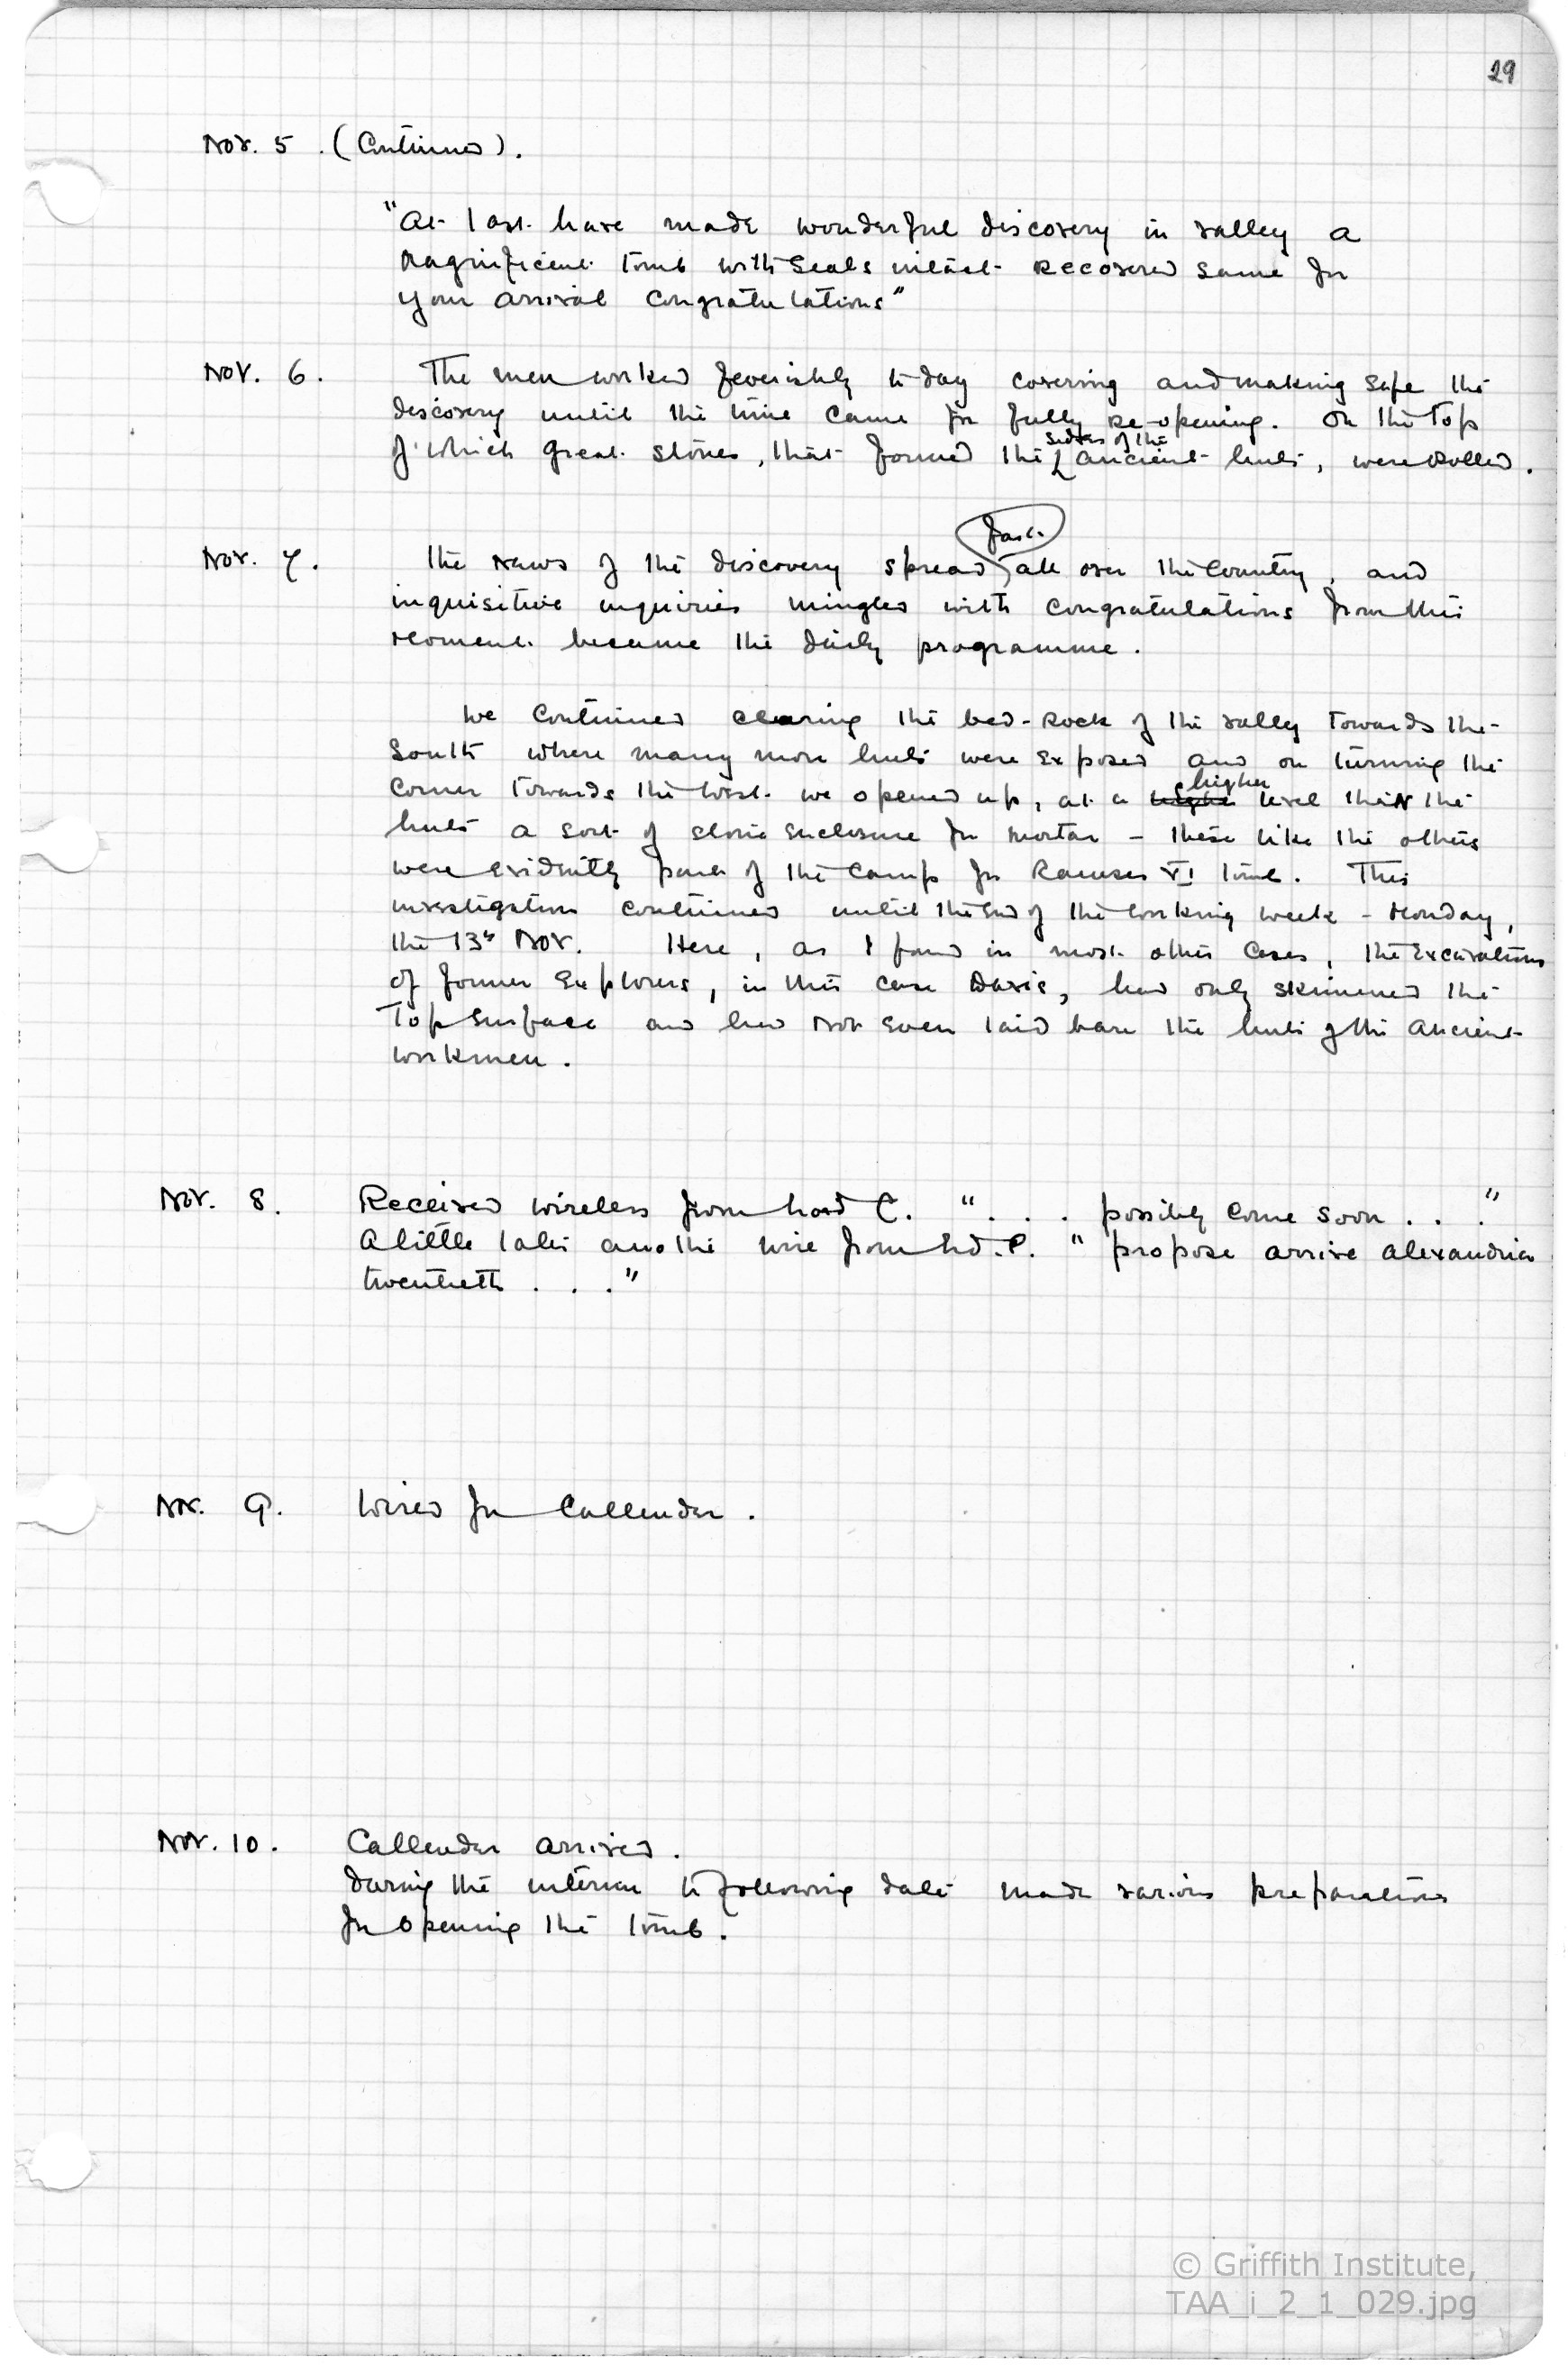 29
Nov. 5. (Continued).
"At last have made wonderful discovery in valley a
magnificent tomb with seals intact recovered same for
your arrival congratulations"
Nov. 6. The men worked feverishly to day covering and making safe the
discovery until the time came for fully re-opening. On the top
sides of the
of which great stones, that formed the ancient huts, were rolled.
fast
Nov. 7. The news of the discovery spread all over the country, and
inquisitive enquiries mingled with congratulations from this
moment became the daily programme.
We continued clearing the bed-rock of the valley towards the
South where many more huts were exposed and on turning the
higher
corner towards the West we opened up, at a higher level than the
huts a sort of stone enclosure for mortar – these like the others
were evidently part of the camp for Ramses VI tomb. This
investigation continued until the end of the working week – Monday,
the 13th Nov. Here, as I found in most other cases, the excavations
of former explorers, in this case Davis, had only skimmed the
top surface and had not even laid bare the huts of the ancient
workmen.
Nov. 8. Received wireless from Lord C. " . . . possibly come soon . . ."
A little later another wire from Ld. C. " propose arrive Alexandria
twentieth . . ."
Nov. 9. Wired for Callender.
Nov. 10. Callender arrived.
During the interim to following date made various preparations
for opening the tomb.
© Griffith Institute,
TAA_i_2_1_029.jpg